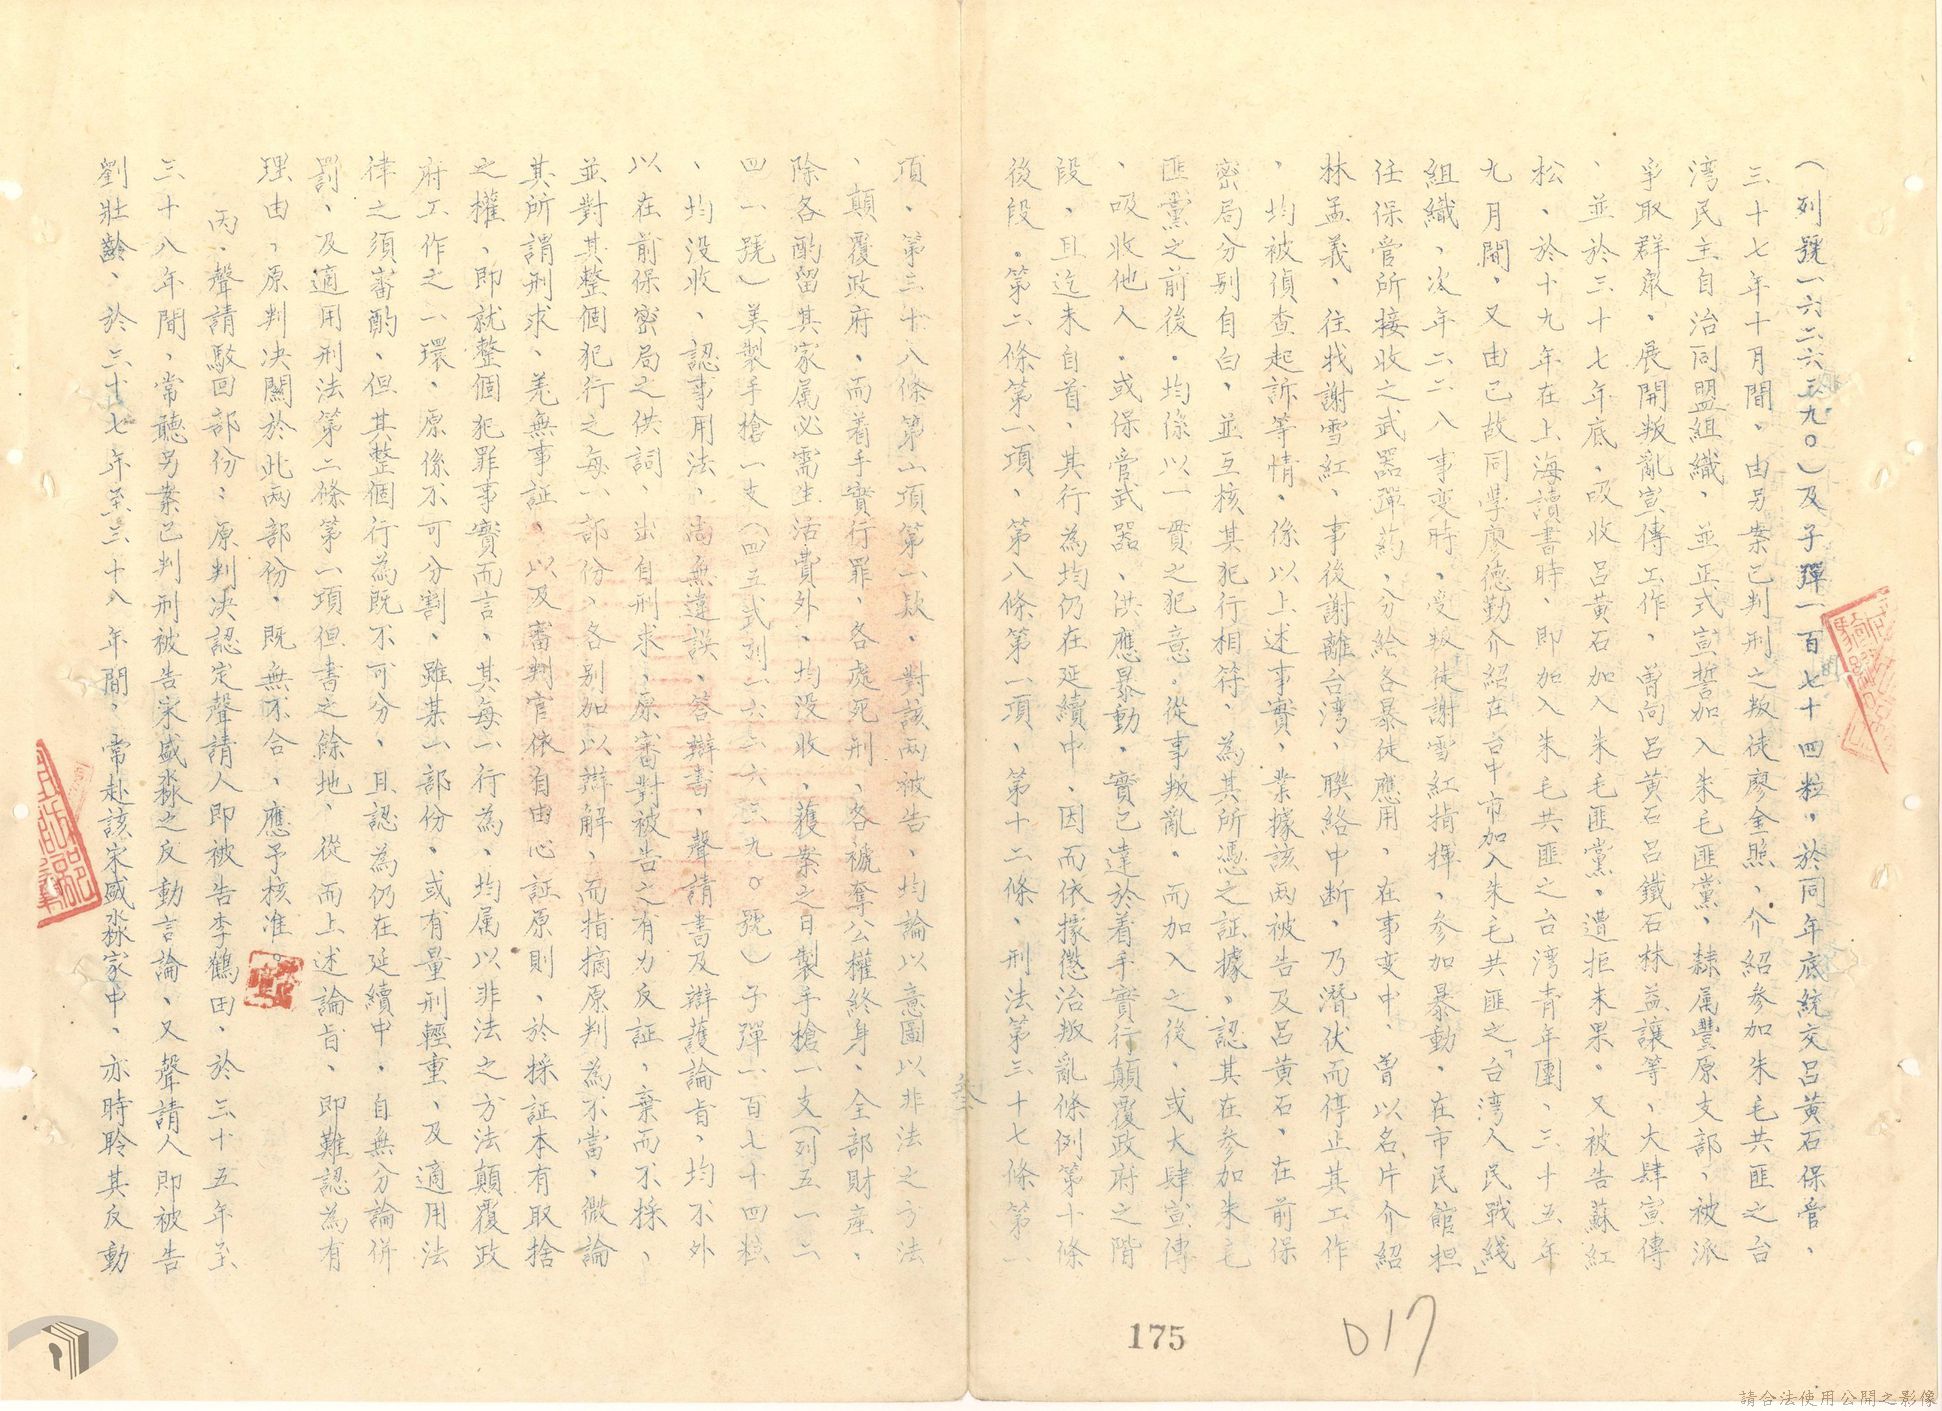 (列號一六二六三九〇)及子彈一百七十四粒。於同年底統交呂黃石保管、
三十七年十月間。由另案已判刑之叛徒廖金照、介紹參加朱毛共匪之台
湾民主自治同盟組織、並正式宣誓加入朱毛匪黨、隸属豐原支部、被派
爭取群眾、展開叛亂宣傳工作、曾向呂黃石呂鐵石林益讓等、大肆宣傳
、並於三十七年底、吸收呂黃石加入朱毛匪黨、遭拒未果。又被告蘇紅
松、於十九年在上海讀書時、即加入朱毛共匪之台湾青年團、三十五年
九月間、又由已故同學廖德勤介紹在台中市加入朱毛共匪之「台湾人民戰綫」
組織、次年二二八事变時、受叛徒謝雪紅指揮、參加暴動、在市民館担
任保管所接收之武器彈药、分給各暴徒應用、在事变中、曾以名片介紹
林孟義、往找謝雪紅、事後謝離台湾、联络中断、乃潛伏而停止其工作
、均被偵查起訴等情、係以上述事實、業據該两被告及呂黃石、在前保
密局分別自白、並互核其犯行相符、為其所憑之証據、認其在參加朱毛
匪黨之前後。均係以一貫之犯意。從事叛亂。而加入之後、或大肆宣傳
、吸收他人。或保管武器、洪應暴動、實已達於着手實行顛覆政府之階
段、且迄未自首、其行為均仍在延續中、因而依據懲治叛亂條例第十條
後段。第二條第一項、第八條第一項、第十二條、刑法第三十七條第一
項、第三十八條第一項第一欵、對該两被告、均論以意圖以非法之方法
、顛覆政府、而着手實行罪、各處死刑、各褫奪公權終身、全部財產、
除各酌留其家属必需生活費外、均没收、獲案之日製手槍一支(列五一二
四一號)美製手槍一支(四五式列一六二六三九〇號)子彈一百七十四粒
、均没收、認事用法、尚無違誤、答辯書、聲請書及辯護論旨、均不外
以在前保密局之供詞、出自刑求、原審對被告之有力反証、棄而不採、
並對其整個犯行之每一部份、各別加以辯解、而指摘原判為不當、微論
其所謂刑求、羌無事証、以及審判官依自由心証原則、於採証本有取捨
之權、即就整個犯罪事實而言、其每一行為、均属以非法之方法顛覆政
府工作之一環、原係不可分割、雖某一部份。或有量刑輕重、及適用法
律之須審酌、但其整個行為既不可分、且認為仍在延續中、自無分論併
罰、及適用刑法第二條第一項但書之餘地、從而上述論旨、即難認為有
理由、原判決關於此两部份、既無不合、應予核准。
丙、聲請駁回部份:原判決認定聲請人即被告李鶴田、於三十五年至
三十八年間、常聽另案已判刑被告宋盛淼之反動言論、又聲請人即被告
劉壯齡、於三十七年至三十八年間、常赴該宋盛淼家中、亦時聆其反動
175
017
請合法使用公開之影像